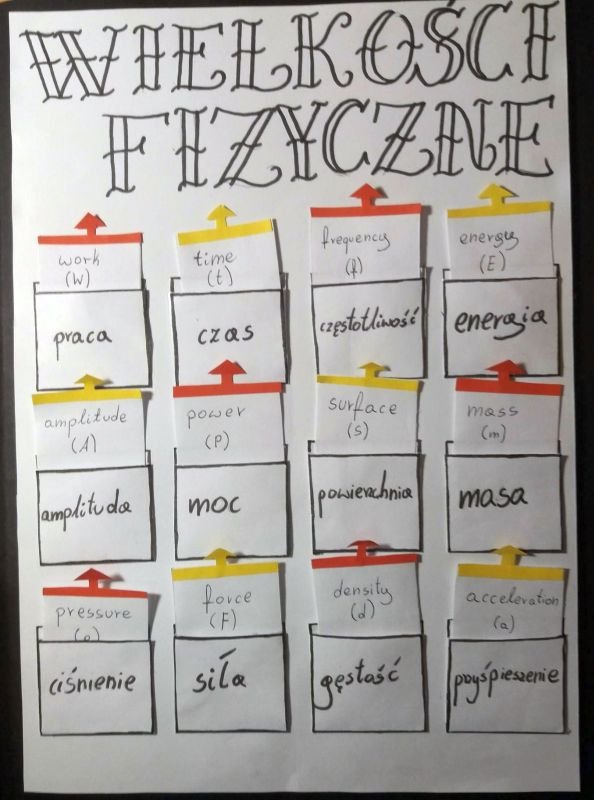 WIELKOŚCI
FIZYCZNE
work
(W)
praca
time
(t)
czas
frequency
(f)
częstotliwość
energy
(E)
energia
amplitude
(A)
amplituda
power
(P)
moc
surface
(S)
powierzchnia
mass
(m)
masa
pressure
(p)
ciśnienie
force
(F)
siła
density
(d)
gęstość
acceleration
(a)
przyśpieszenie